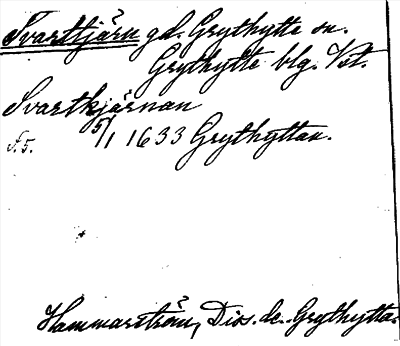 Svarttjärn gd. Grythytte sn.
Grythytte blg. Vst.
Svartkjärnan
f. 5. 5/1 1633 Grythyttan.
Hammarström, Diss. de. Grythytta.